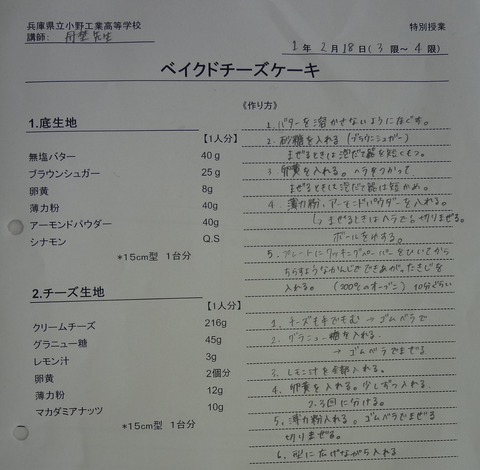 兵庫県立小野工業高等学校
特別授業
講師: 丹埜先生
1年 2月18日(3限～4限)
ベイクドチーズケーキ
《作り方》
1.底生地
【1人分】
無塩バター 40g
ブラウンシュガー 25g
卵黄 8g
薄力粉 40g
アーモンドパウダー 40g
シナモン Q.S
*15cm型 1台分
1. バターを溶かさないようにほぐす。
2. 砂糖を入れる(ブラウンシュガー)
まぜるときは泡だて器を短くもつ。
3. 卵黄を入れる。ヘラをつかって
まぜるときは泡だて器は短かめ。
4. 薄力粉、アーモンドパウダーを入れる。
↳まぜるときはヘラでも切りまぜる。
ボールをゆする。
5. プレートにクッキングペーパーをひいてから
ちらすようなかんじでできあがったきじを
入れる。(200℃のオーブン) 10分ぐらい
2.チーズ生地
【1人分】
クリームチーズ 216g
グラニュー糖 45g
レモン汁 3g
卵黄 2個分
薄力粉 12g
マカダミアナッツ 10g
*15cm型 1台分
1. チーズを手でもむ → ゴムベラで
2. グラニュー糖を入れる.
→ ゴムベラでまぜる
3. レモン汁を全部入れる。
4. 卵黄を入れる。少しずつ入れる
2.3回に分ける。
5. 薄力粉入れる。ゴムベラでまぜる
切りまぜる。
6. 型に広げながら入れる